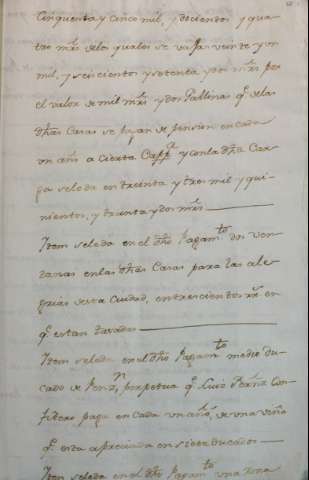 Cinquenta y cinco mil, y docientos, y qua-
tro mrs delos quales se va Para veinte y un
mil, y seiscientos y setenta y dos mrs por
el valor de mil mrs y dos Gallinas q. de las
dhas Casas se pagan de pension en cada
un año a cierta Capp.a y con la dha Car-
ga se le da en treinta y tres mil, y qui-
nientos, y treinta y dos mrs
Item se le da en el dho Pagam.to dos Ven-
tanas en las dhas Casas para las ale-
grias desta Ciudad, en trescientos Rs en
q. estan tasadas
Item se le da en el dho Pagam.to medio du-
cado de Zenzo perpetuo q. Luis Perez Con-
fitero paga en cada un año, de una viña
q. esta apreciada en siete ducados
Item se le da en el dho Pagam.to una